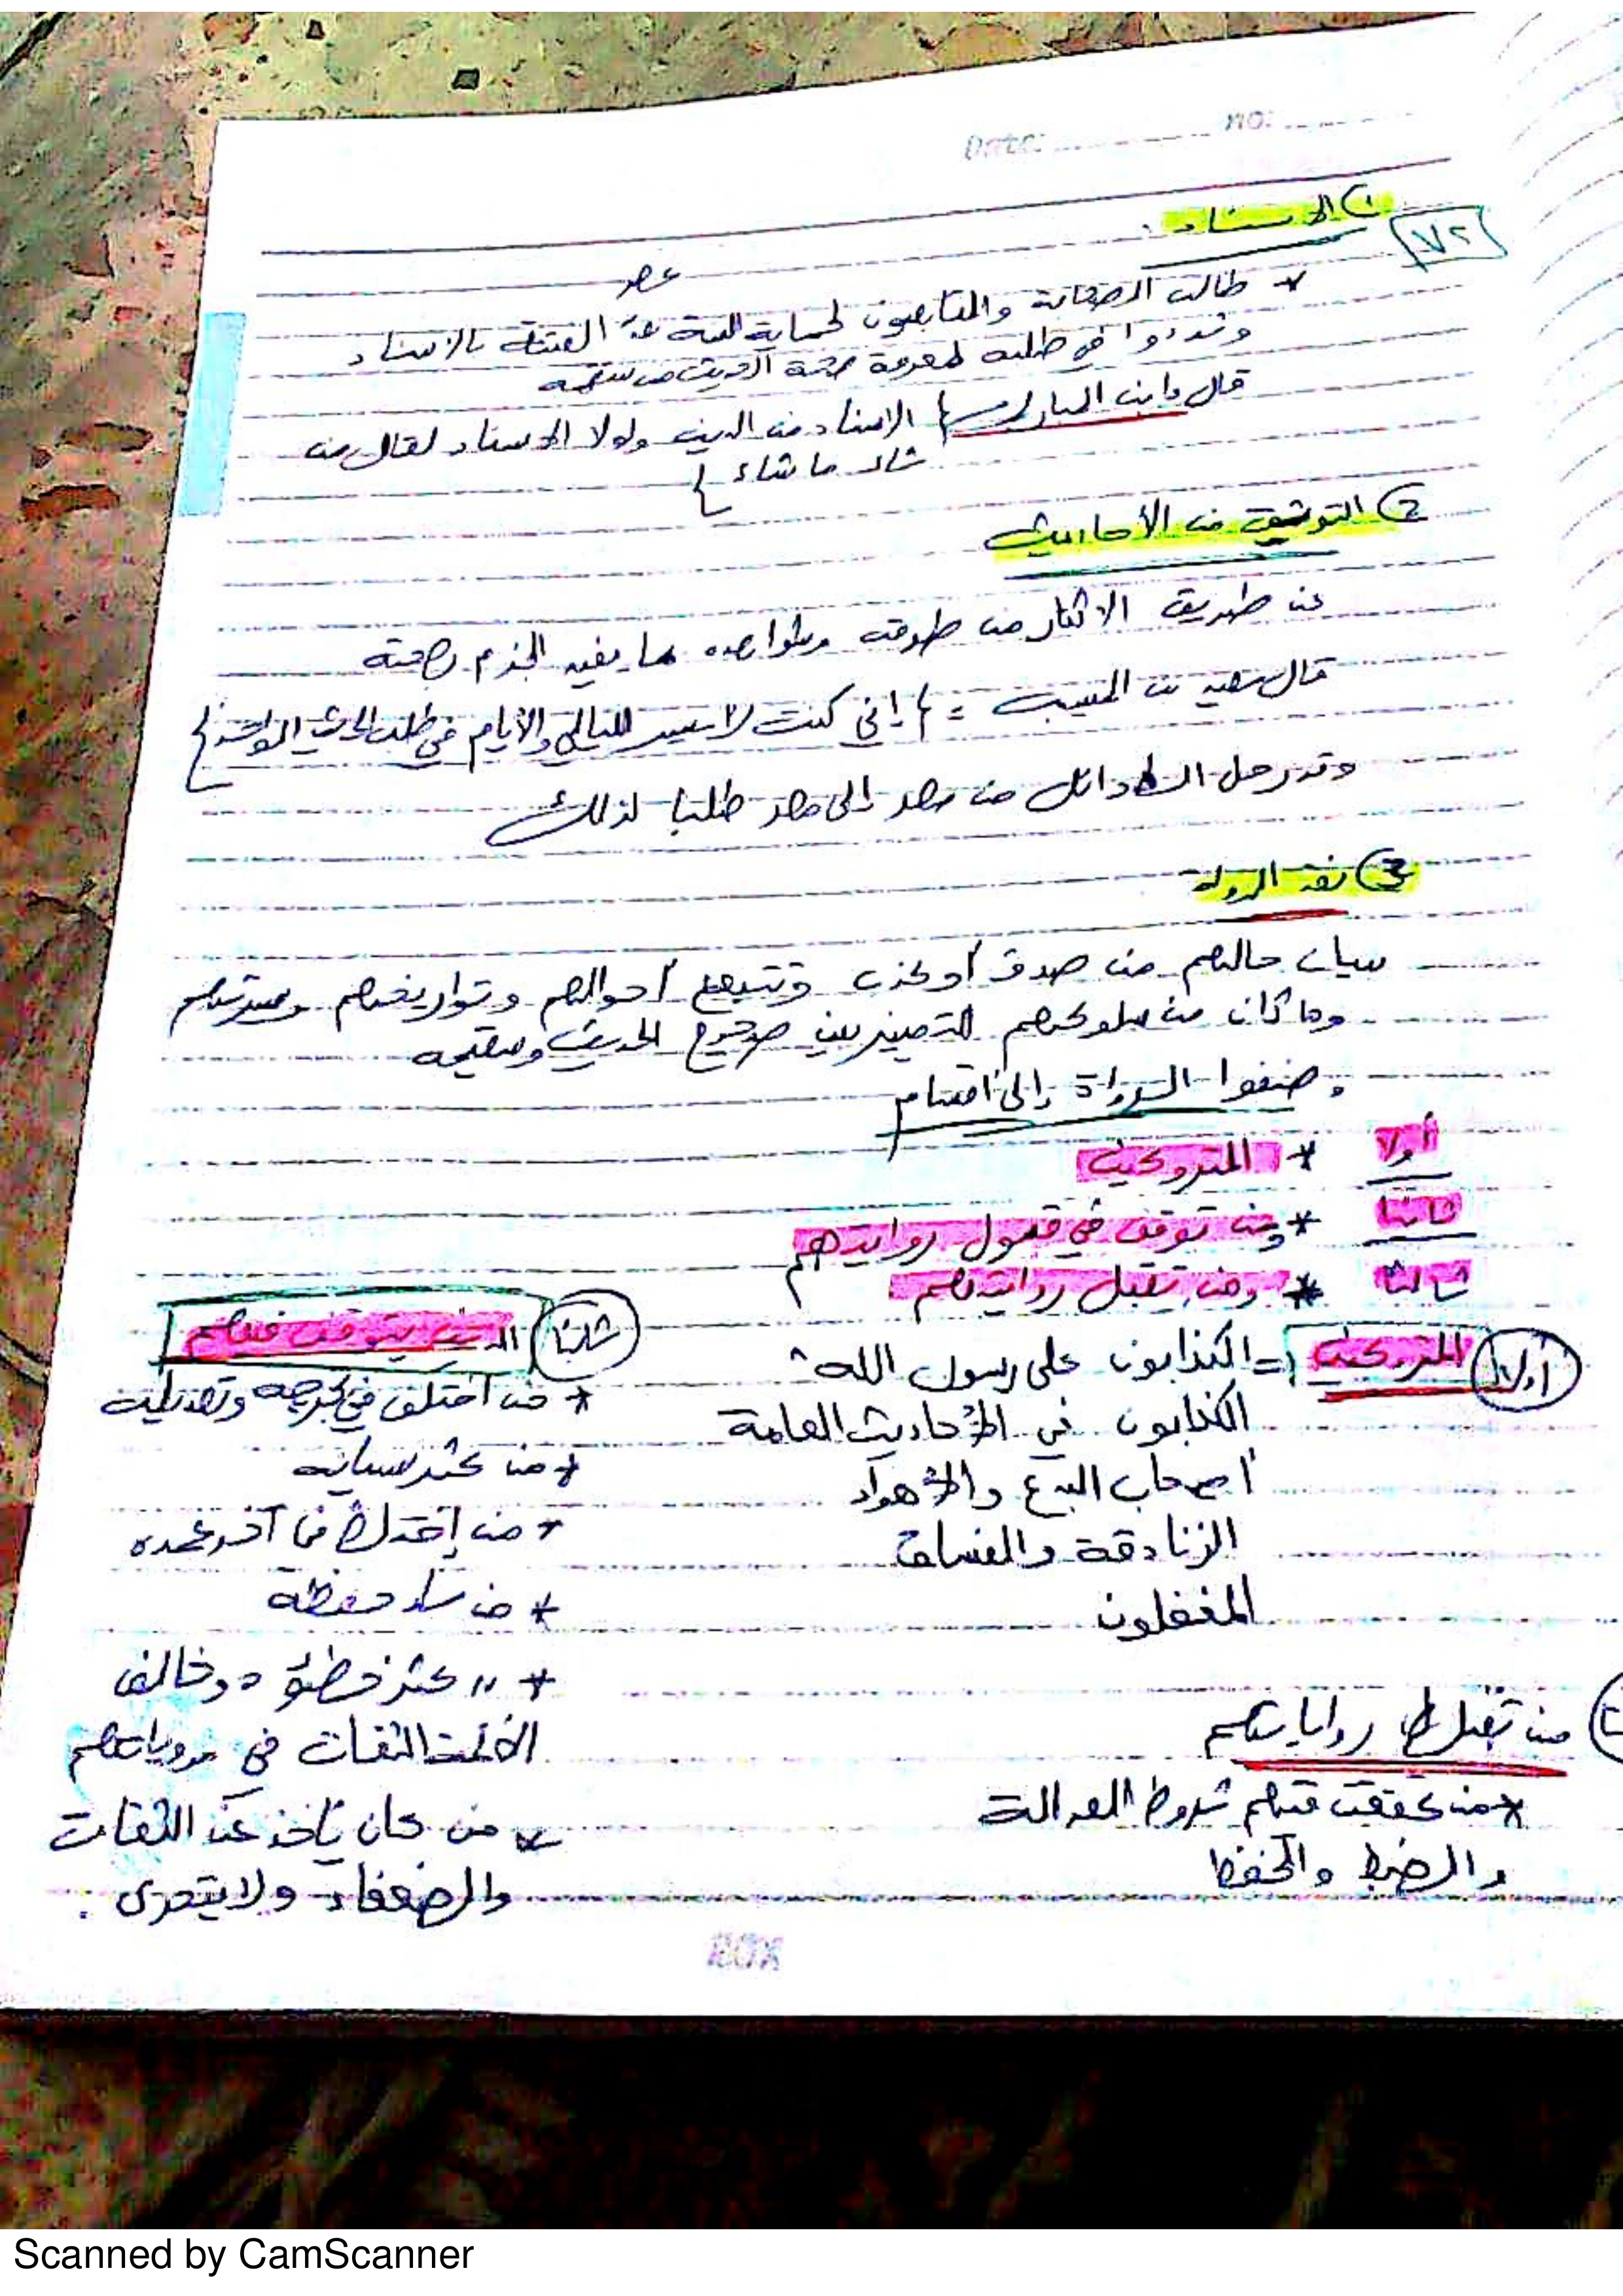 Date: no:
١) الاسناد :
٧٢
عصر
* طالب الصحابة والتابعون لحماية السنة عند الفتنة بالاسناد
وشددوا في طلبه لمعرفة صحة الحديث من سقمه
قال ابن المبارك { الاسناد من الدين ولولا الاسناد لقال من
شاء ما شاء }
2 التوثيق من الأحاديث
عن طريق الاكثار من طرقه وشواهده مما يفيد الجزم بصحته
قال سعيد بن المسيب = { إني كنت لاسير الليالي والأيام في طلب الحديث الواحد }
وقد رحل الاوائل من مصر إلى مصر طلبا لذلك
3 نقد الرواة
بيان حالهم من صدق أو كذب وتتبع أحوالهم وتواريخهم وسيرتهم
وما كان من سلوكهم للتمييز بين صحيح الحديث وسقيمه
وصنفوا الرواة إلى أقسام
أولا * المتروكين
ثانيا * ومن توقف في قبول روايتهم
ثالثا * ومن تقبل روايتهم
أولا المتروكين = الكذابون على رسول الله
الكذابون في الأحاديث العامة
أصحاب البدع والأهواء
الزنادقة والفساق
المغفلون
من تقبل روايتهم
* من تحققت فيهم شروط العدالة
والضبط والحفظ
ثانيا الذين يتوقف فيهم
* من اختلف في تجريحه وتعديله
* من كثر نسيانه
* من إختلط في آخر عمره
* من ساء حفظه
* " كثر خطؤه وخالف
الأئمة الثقات في مروياتهم
* من كان يأخذ عن الثقات
والضعفاء ولا يتحرى .
BOX
Scanned by CamScanner